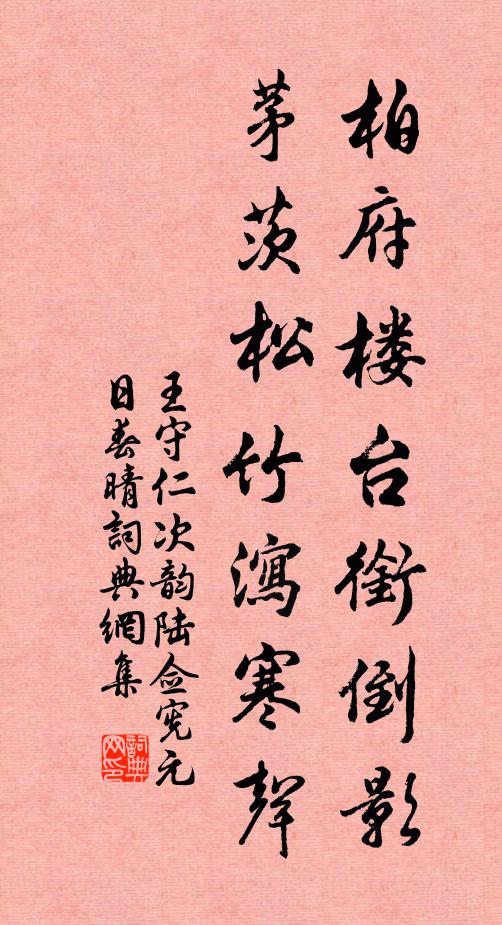 柏府楼台銜倒影
茅茨松竹瀉寒聲
王守仁次韵陆佥宪元
日春晴詞典網集
詞典
网印